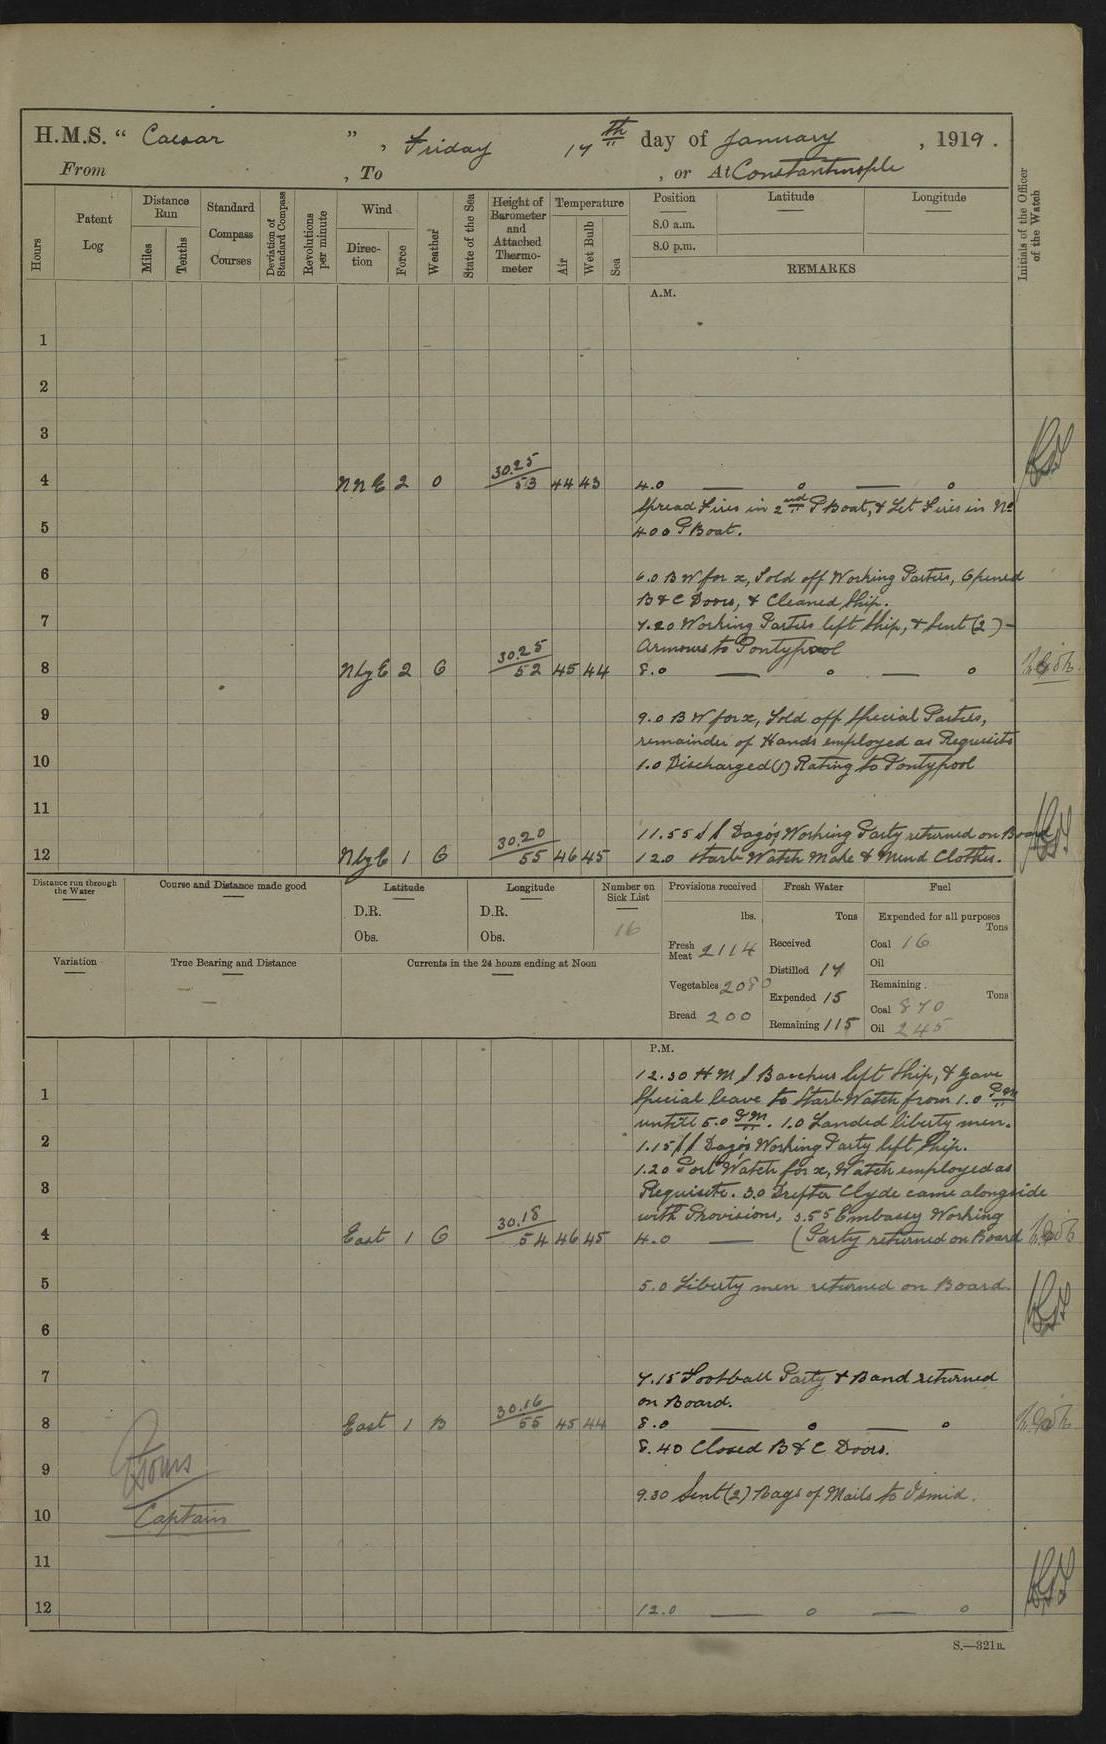 H.M.S. “ Caesar ” , Friday 17th day of January , 1919 .
From , To , or At Constantinople
Hours
Patent Log
Distance Run
Miles
Tenths
Standard Compass Courses
Deviation of Standard Compass
Revolutions per minute
Wind
Direction
Force
Weather
State of the Sea
Height of Barometer and Attached Thermometer
Temperature
Air
Wet Bulb
Sea
Position Latitude Longitude
8.0 a.m.
8.0 p.m.
REMARKS
Initials of the Officer of the Watch
A.M.
1
2
3
4 NNE 2 O 30.25/53 44 43 4.0 — o — o
Spread Fires in 2nd P Boat, & Let Fires in No
5 400 P Boat.
6 6.0 B W for x, Told off Working Parties, Opened
B & C Doors, & Cleaned Ship.
7 7.20 Working Parties left Ship, & Sent (2) –
Armours to Pontypool
8 NbyE 2 C 30.25/52 45 44 8.0 — o — o
9 9.0 B W for x, Told off Special Parties,
remainder of Hands employed as Requisits
10 1.0 Discharged (1) Rating to Pontypool
11
11.55 S S Dago's Working Party returned on Board
12 NbyE 1 C 30.20/55 46 45 12.0 Starb Watch Make & Mend Clothes.
Distance run through the Water
Course and Distance made good
Latitude
D.R.
Obs.
Longitude
D.R.
Obs.
Number on Sick List
16
Provisions received
lbs.
Fresh Meat 2114
Vegetables 2080
Bread 200
Fresh Water
Tons
Received
Distilled 17
Expended 15
Remaining 115
Fuel
Expended for all purposes
Tons
Coal 16
Oil
Remaining .
Tons
Coal 870
Oil 245
Variation
True Bearing and Distance
Currents in the 24 hours ending at Noon
P.M.
12.30 H M S Bacchus left Ship, & Gave
1 Special leave to Starb Watch from 1.0 PM
untill 5.0 PM. 1.0 Landed liberty men.
2 1.15 S S Dago's Working Party left Ship.
1.20 Port Watch for x, Watch employed as
3 Requisite. 3.0 Drifter Clyde came alongside
with Provisions, 3.55 Embassy Working
4 East 1 C 30.18/54 46 45 4.0 — (Party returned on Board
5 5.0 Liberty men returned on Board.
6
7 7.15 Football Party & Band returned
on Board.
8 East 1 B 30.16/55 45 44 8.0 — o — o
8.40 Closed B & C Doors.
9
9.30 Sent (2) Bags of Mails to Ismid.
10
Captain
11
12 12.0 — o — o
S.—321B.